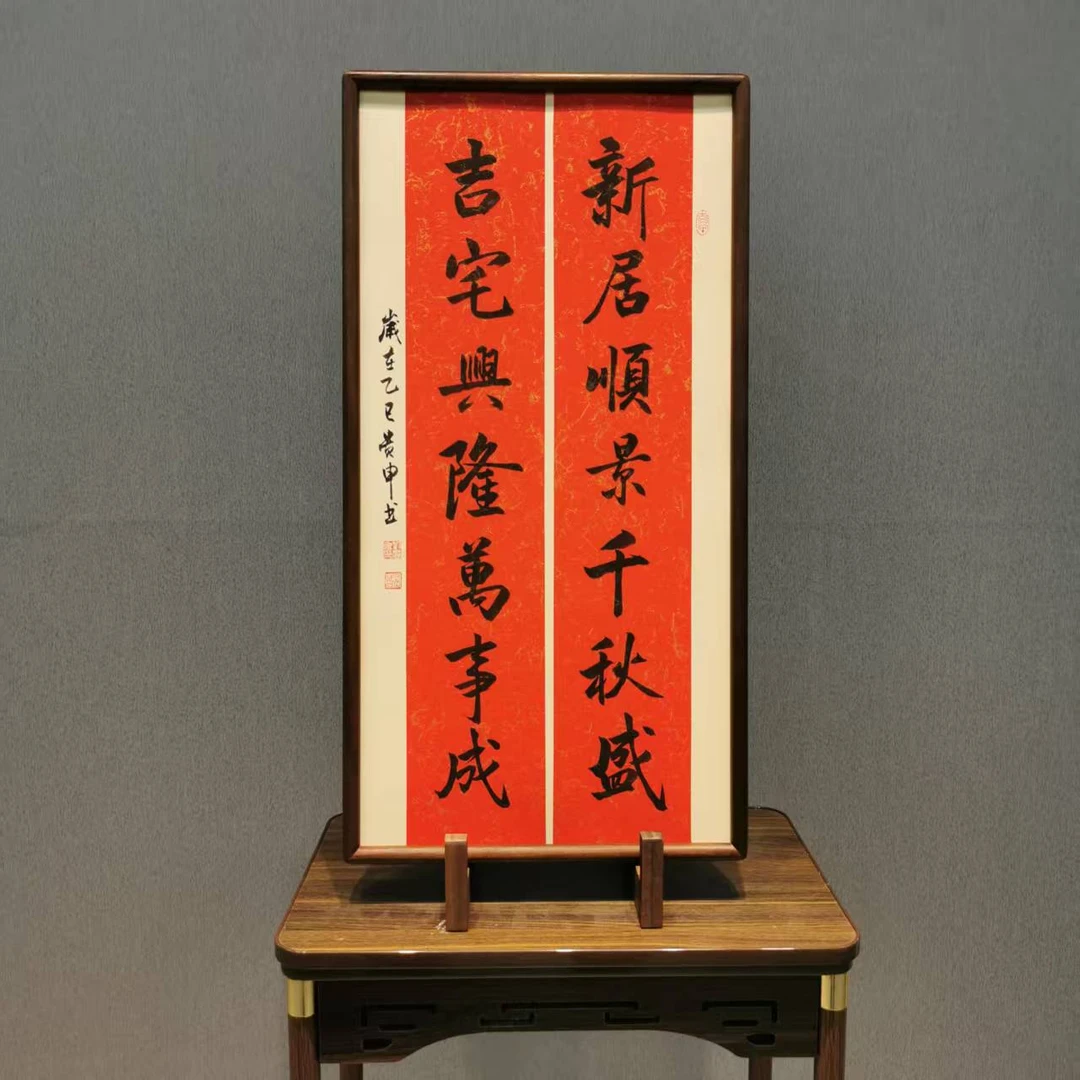 新居順景千秋盛
吉宅興隆萬事成
歲在乙巳贵申书